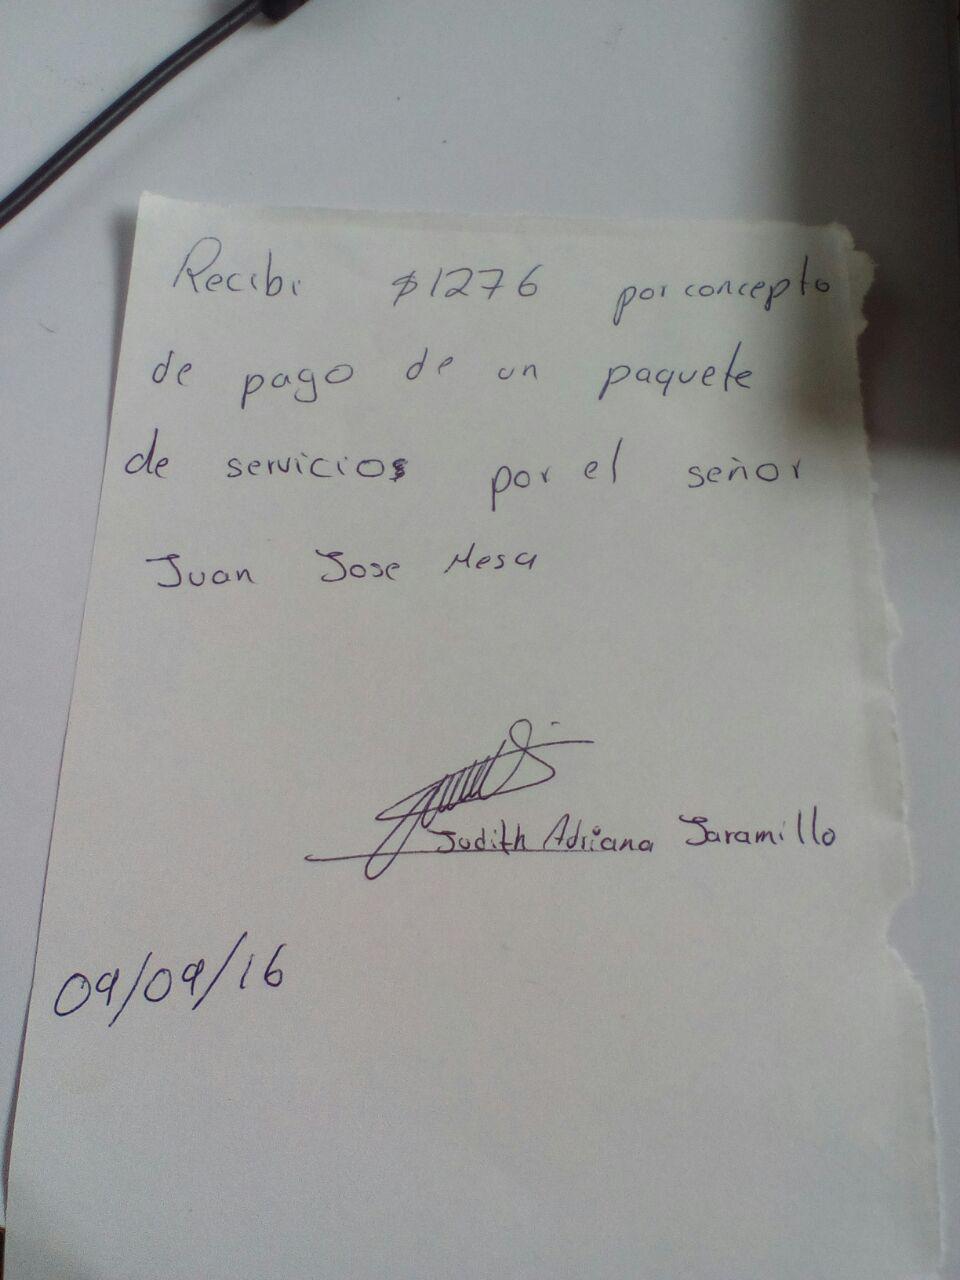 Recibi $1276 por concepto
de pago de un paquete
de servicios por el señor
Juan Jose Mesa
Judith Adriana Jaramillo
09/09/16